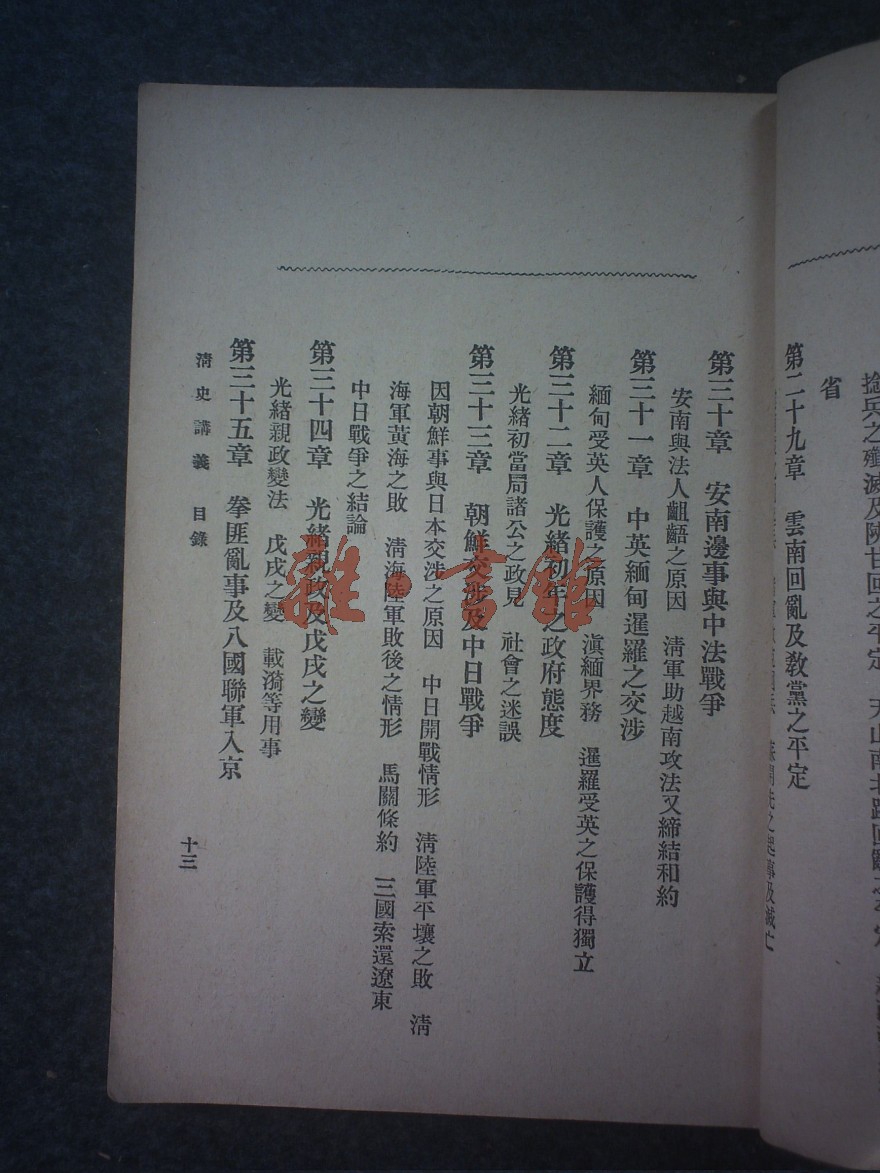 省
第二十九章　雲南回亂及教黨之平定
第三十章　安南邊事與中法戰爭
安南與法人齟齬之原因　清軍助越南攻法又締結和約
第三十一章　中英緬甸暹羅之交涉
緬甸受英人保護之原因　滇緬界務　暹羅受英之保護得獨立
第三十二章　光緒初年之政府態度
光緒初當局諸公之政見　社會之迷誤
第三十三章　朝鮮交涉及中日戰爭
因朝鮮事與日本交涉之原因　中日開戰情形　清陸軍平壤之敗　清
海軍黃海之敗　清海陸軍敗後之情形　馬關條約　三國索還遼東
中日戰爭之結論
第三十四章　光緒親政及戊戌之變
光緒親政變法　戊戌之變　載漪等用事
第三十五章　拳匪亂事及八國聯軍入京
清史講義　目錄
十三
雜·書館